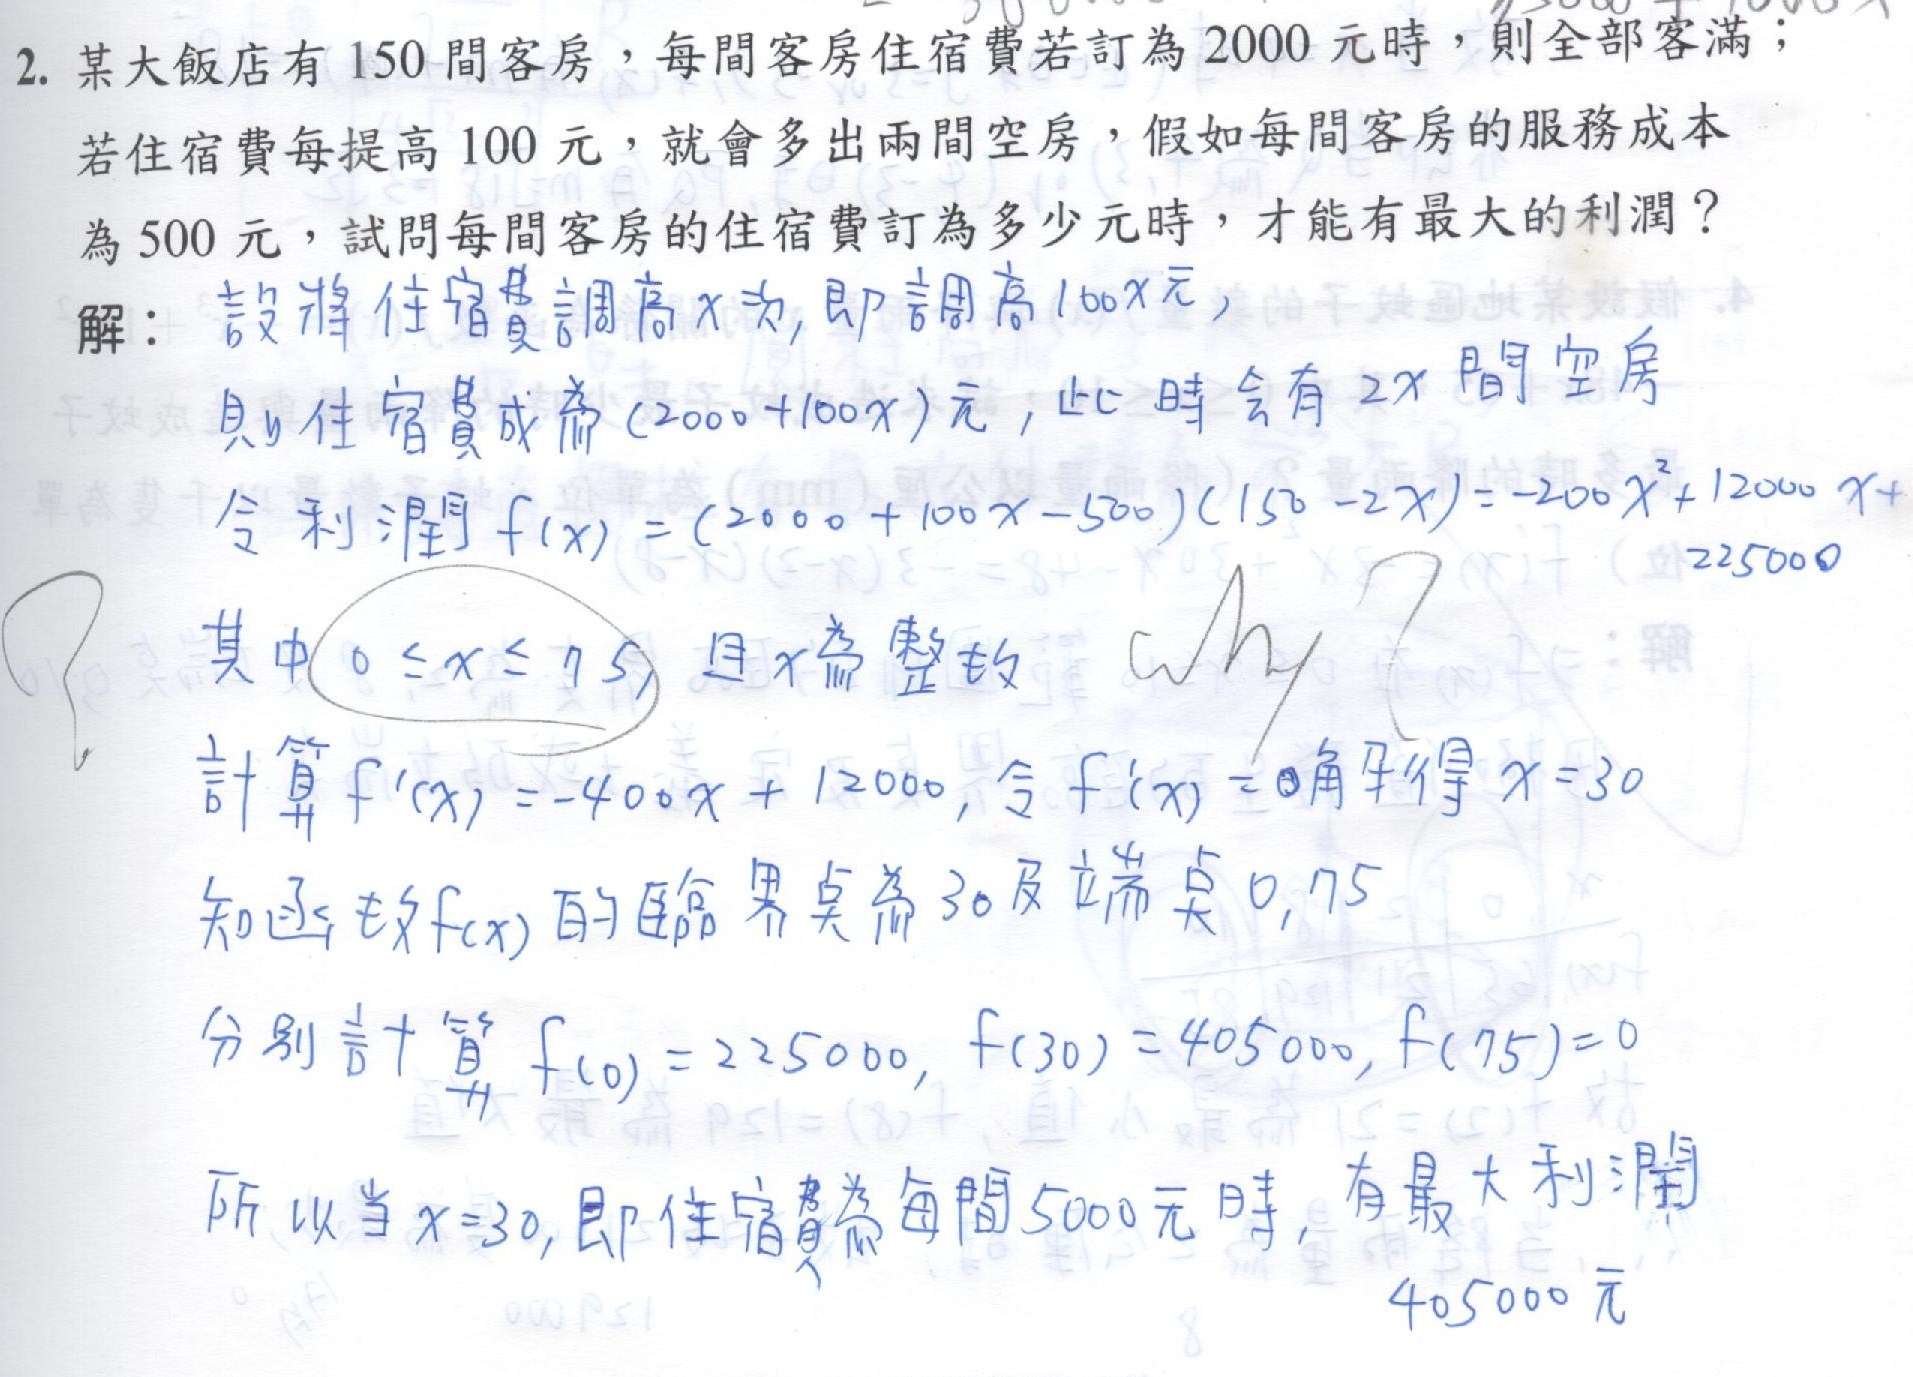 2. 某大飯店有 150 間客房，每間客房住宿費若訂為 2000 元時，則全部客滿；
若住宿費每提高 100 元，就會多出兩間空房，假如每間客房的服務成本
為 500 元，試問每間客房的住宿費訂為多少元時，才能有最大的利潤？
解： 設將住宿費調高x次, 即調高100x元,
則住宿費成為(2000+100x)元, 此時会有 2x 間空房
令利潤 f(x) = (2000+100x-500)(150-2x) = -200x²+12000x+
225000
? 其中 0≤x≤75, 且x為整数 why?
計算 f'(x) = -400x + 12000, 令 f'(x) = 0解得 x=30
知函数f(x) 的臨界点為30及端点0,75
分別計算 f(0) = 225000, f(30) = 405000, f(75)=0
所以当x=30, 即住宿費為每間5000元時, 有最大利潤
405000元